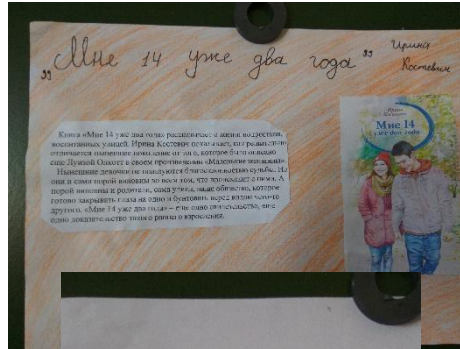 „Мне 14 уже два года”
Ирина
Костевич
Книга «Мне 14 уже два года» рассказывает о жизни подростков,
воспитанных улицей. Ирина Костевич показывает, как разительно
отличается нынешнее поколение от того, которое было описано
еще Луизой Олкотт в своем произведении «Маленькие женщины»
Нынешние девочки не пользуются благосклонностью судьбы. Но
они и сами порой виновны во всем том, что происходит с ними. А
порой виновны и родители, сама улица, наше общество, которое
готово закрывать глаза на одно и бунтовать перед видом чего-то
другого. «Мне 14 уже два года» – еще одно свидетельство, еще
одно доказательство нашего раннего взросления.
Ирина
Костевич
Мне 14
уже два года